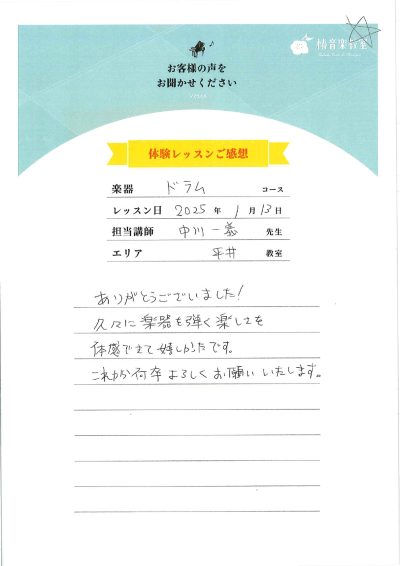 椿音楽教室
お客様の声を
お聞かせください
VOICE
体験レッスンご感想
楽器 ドラム コース
レッスン日 2025 年 1 月 13 日
担当講師 中川一義 先生
エリア 平井 教室
ありがとうございました!
久々に楽器を弾く楽してを
体感できて嬉しかったです。
これから何卒よろしくお願いいたします。